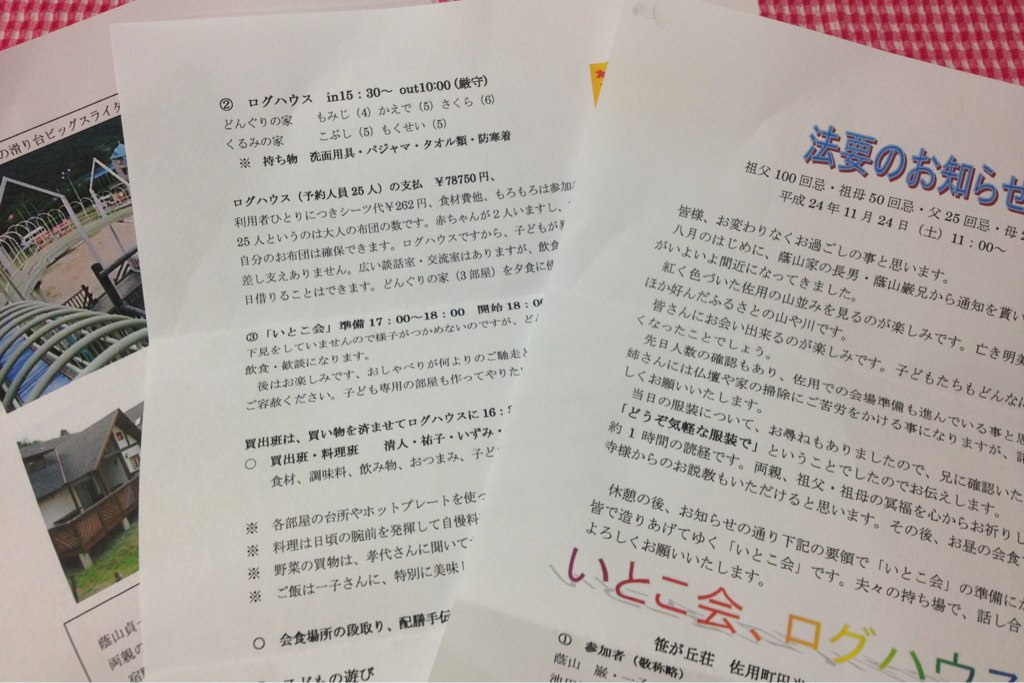 の滑り台ビッグスライダ
蔭山貞一
両親の
② ログハウス in15：30～ out10:00(厳守)
どんぐりの家 もみじ（4）かえで（5）さくら（6）
くるみの家 こぶし（5）もくせい（5）
※ 持ち物 洗面用具・パジャマ・タオル類・防寒着
ログハウス（予約人員25人）の支払 ￥78750円、
利用者ひとりにつきシーツ代￥262円、食材費他、もろもろは参加
25人というのは大人の布団の数です。赤ちゃんが2人いますし、
自分のお布団は確保できます。ログハウスですから、子どもが
差し支えありません。広い談話室・交流室はありますが、飲食
日借りることはできます。どんぐりの家（3部屋）を夕食に使
③「いとこ会」準備17：00～18：00 開始18：00
下見をしていませんので様子がつかめないのですが、どん
飲食・歓談になります。
後はお楽しみです、おしゃべりが何よりのご馳走と
ご容赦ください。子ども専用の部屋も作ってやりた
買出班は、買い物を済ませてログハウスに16：
○ 買出班・料理班 清人・祐子・いずみ・
食材、調味料、飲み物、おつまみ、子ど
※ 各部屋の台所やホットプレートを使っ
※ 料理は日頃の腕前を発揮して自慢料
※ 野菜の買物は、孝代さんに聞いて
※ ご飯は一子さんに、特別に美味し
○ 会食場所の段取り、配膳手伝
子どもの遊び
法要のお知らせ
祖父100回忌・祖母50回忌・父25回忌・母
平成24年11月24日（土）11：00～
皆様、お変わりなくお過ごしの事と思います。
八月のはじめに、蔭山家の長男・蔭山巌兄から通知を貰い
がいよいよ間近になってきました。
紅く色づいた佐用の山並みを見るのが楽しみです。亡き明美
ほか好んだふるさとの山や川です。
皆さんにお会い出来るのが楽しみです。子どもたちもどんなに
くなったことでしょう。
先日人数の確認もあり、佐用での会場準備も進んでいる事と思
姉さんには仏壇や家の掃除にご苦労をかける事になりますが、
しくお願いいたします。
当日の服装について、お尋ねもありましたので、兄に確認いた
「どうぞ気軽な服装で」ということでしたのでお伝えします。
約1時間の読経です。両親、祖父・祖母の冥福を心からお祈りし
寺様からのお説教もいただけると思います。その後、お昼の会食
休憩の後、お知らせの通り下記の要領で「いとこ会」の準備に
皆で造りあげてゆく「いとこ会」です。夫々の持ち場で、話し合
よろしくお願いいたします。
いとこ会、ログハウス
笹が丘荘 佐用町円光
① 参加者（敬称略）
蔭山 巌・一子
池田